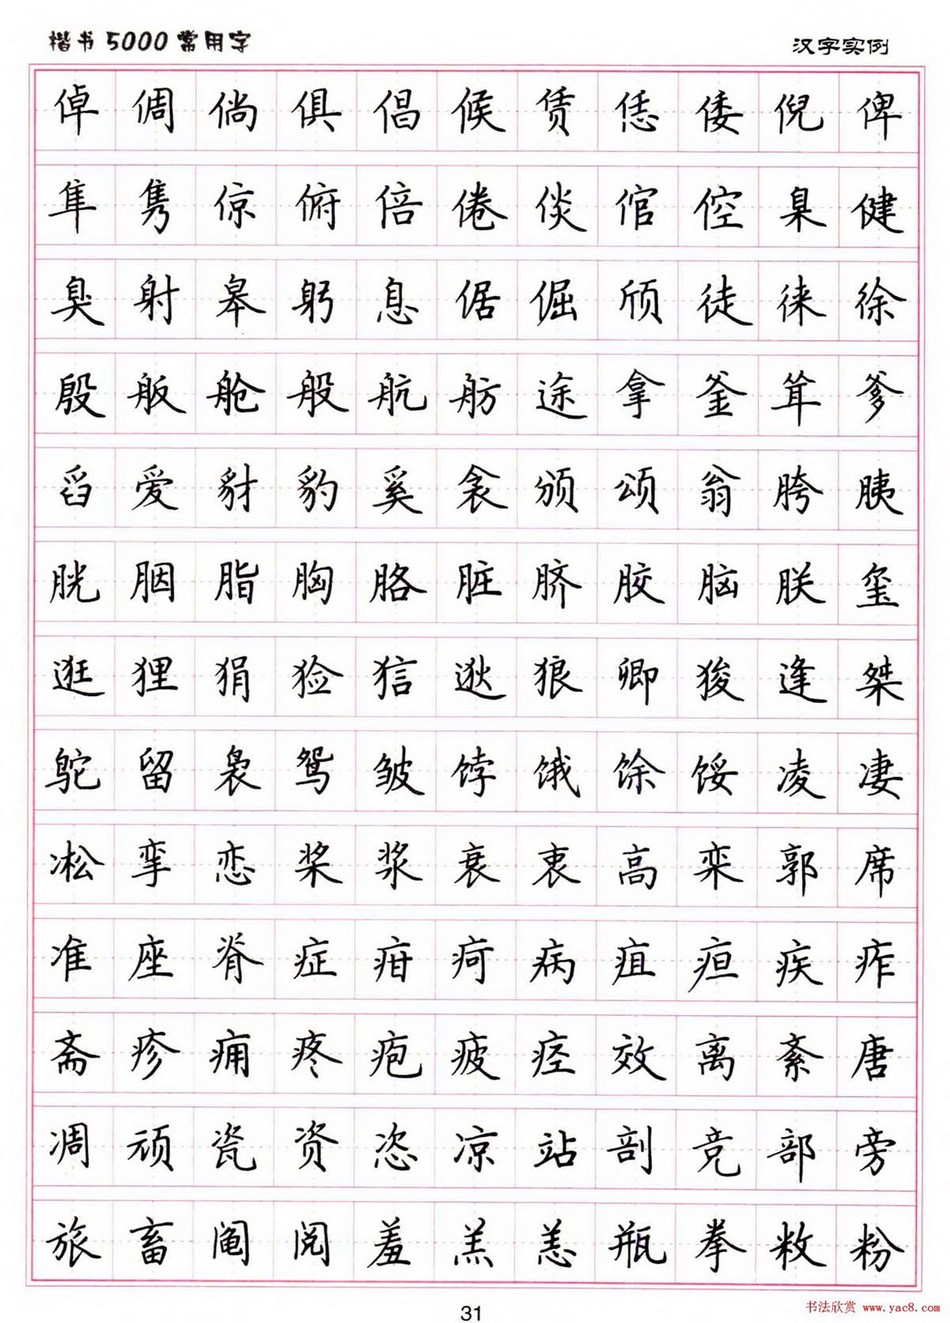 楷书5000常用字 汉字实例
倬 倜 倘 俱 倡 候 赁 恁 倭 倪 俾
隼 隽 倞 俯 倍 倦 倓 倌 倥 臬 健
臭 射 皋 躬 息 倨 倔 颀 徒 徕 徐
殷 舨 舱 般 航 舫 途 拿 釜 耸 爹
舀 爱 豺 豹 奚 衾 颁 颂 翁 胯 胰
胱 胭 脂 胸 胳 脏 脐 胶 脑 朕 玺
逛 狸 狷 猃 狺 逖 狼 卿 狻 逢 桀
鸵 留 袅 鸳 皱 饽 饿 馀 馁 凌 凄
凇 挛 恋 桨 浆 衰 衷 高 栾 郭 席
准 座 脊 症 疳 疴 病 疽 疸 疾 痄
斋 疹 痈 疼 疱 疲 痉 效 离 紊 唐
凋 顽 瓷 资 恣 凉 站 剖 竞 部 旁
旅 畜 阄 阅 羞 羔 恙 瓶 拳 敉 粉
31
书法欣赏 www.yac8.com